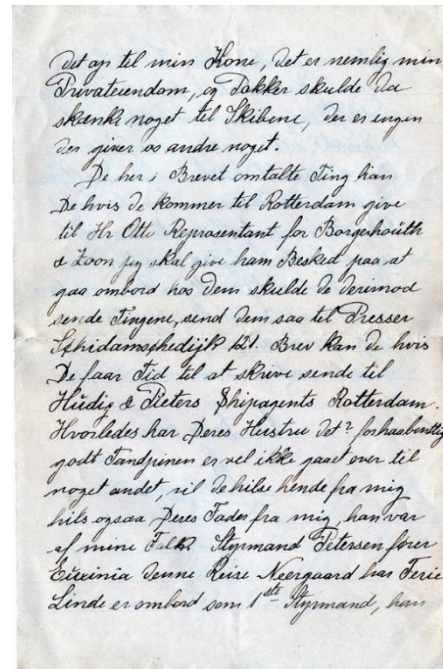 det op til min Kone, det er nemlig min
Privateiendom, og Pakker skulde da
skænke noget til Skibene, der er ingen
der giver os andre noget.
De her i Brevet omtalte Ting kan
De hvis de kommer til Rotterdam give
til Hr Otte Repræsentant for Borgerhoüth
& Zoon jeg skal give ham Besked paa at
gaa ombord hos Dem skulde de derimod
sende Tingene, send dem saa til Presser
Schidamschedijk 121. Brev kan de hvis
De faar Tid til at skrive sende til
Hüdig & Pieters Shipagents Rotterdam.
Hvorledes har Deres Hustru det? forhaabentlig
godt Tandpinen er vel ikke gaaet over til
noget andet, vil de hilse hende fra mig
hils ogsaa Deres Fader fra mig, han var
af mine Folk. Styrmand Petersen fører
Euxinia denne Reise Neergaard har Ferie
Linde er ombord som 1ste Styrmand, han